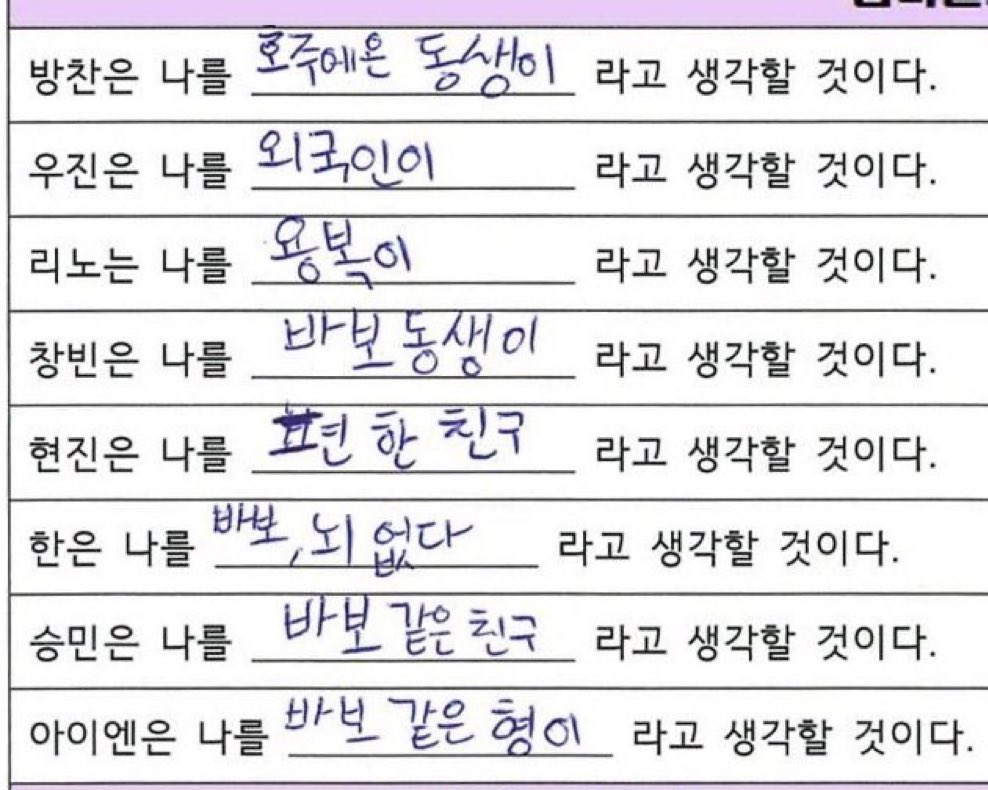 방찬은 나를 호주에은 동생이 라고 생각할 것이다.
우진은 나를 외국인이 라고 생각할 것이다.
리노는 나를 용복이 라고 생각할 것이다.
창빈은 나를 바보 동생이 라고 생각할 것이다.
현진은 나를 편 한 친구 라고 생각할 것이다.
한은 나를 바보, 뇌 없다 라고 생각할 것이다.
승민은 나를 바보 같은 친구 라고 생각할 것이다.
아이엔은 나를 바보 같은 형이 라고 생각할 것이다.